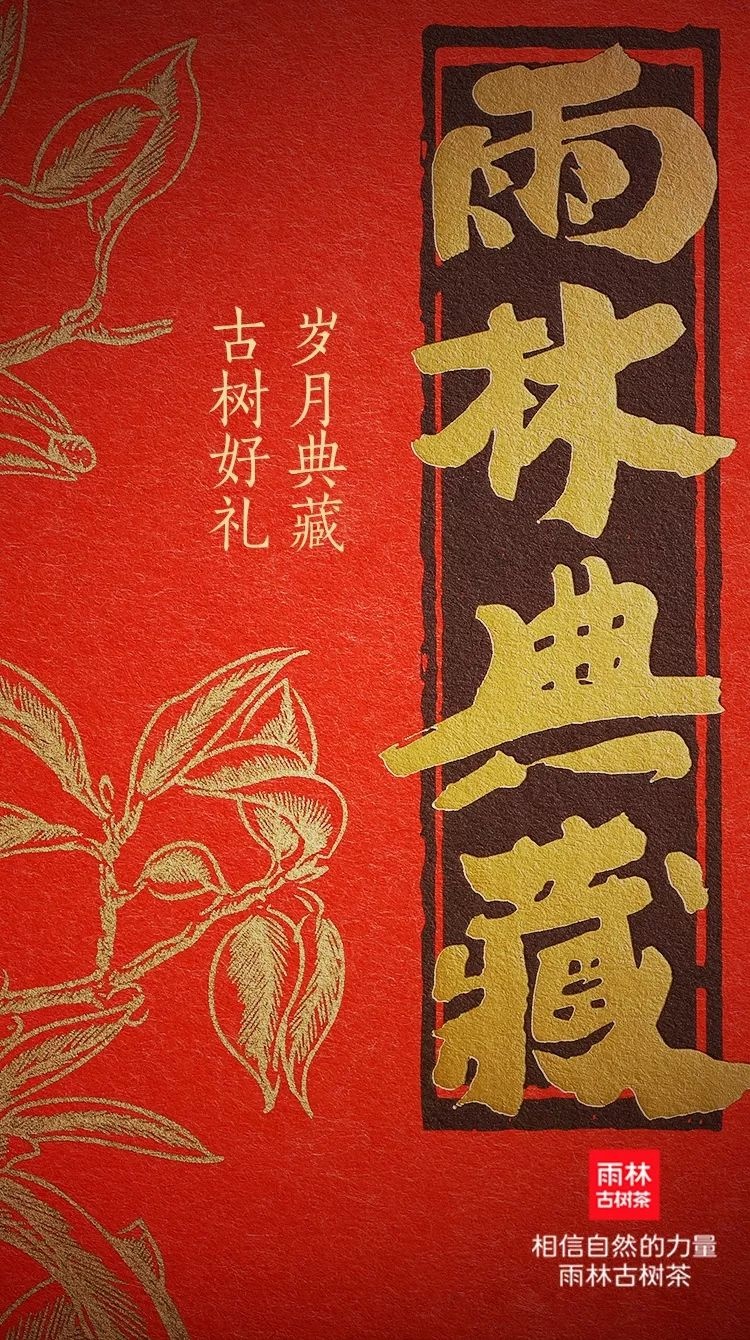 雨林典藏
岁月典藏
古树好礼
雨林
古树茶
相信自然的力量
雨林古树茶